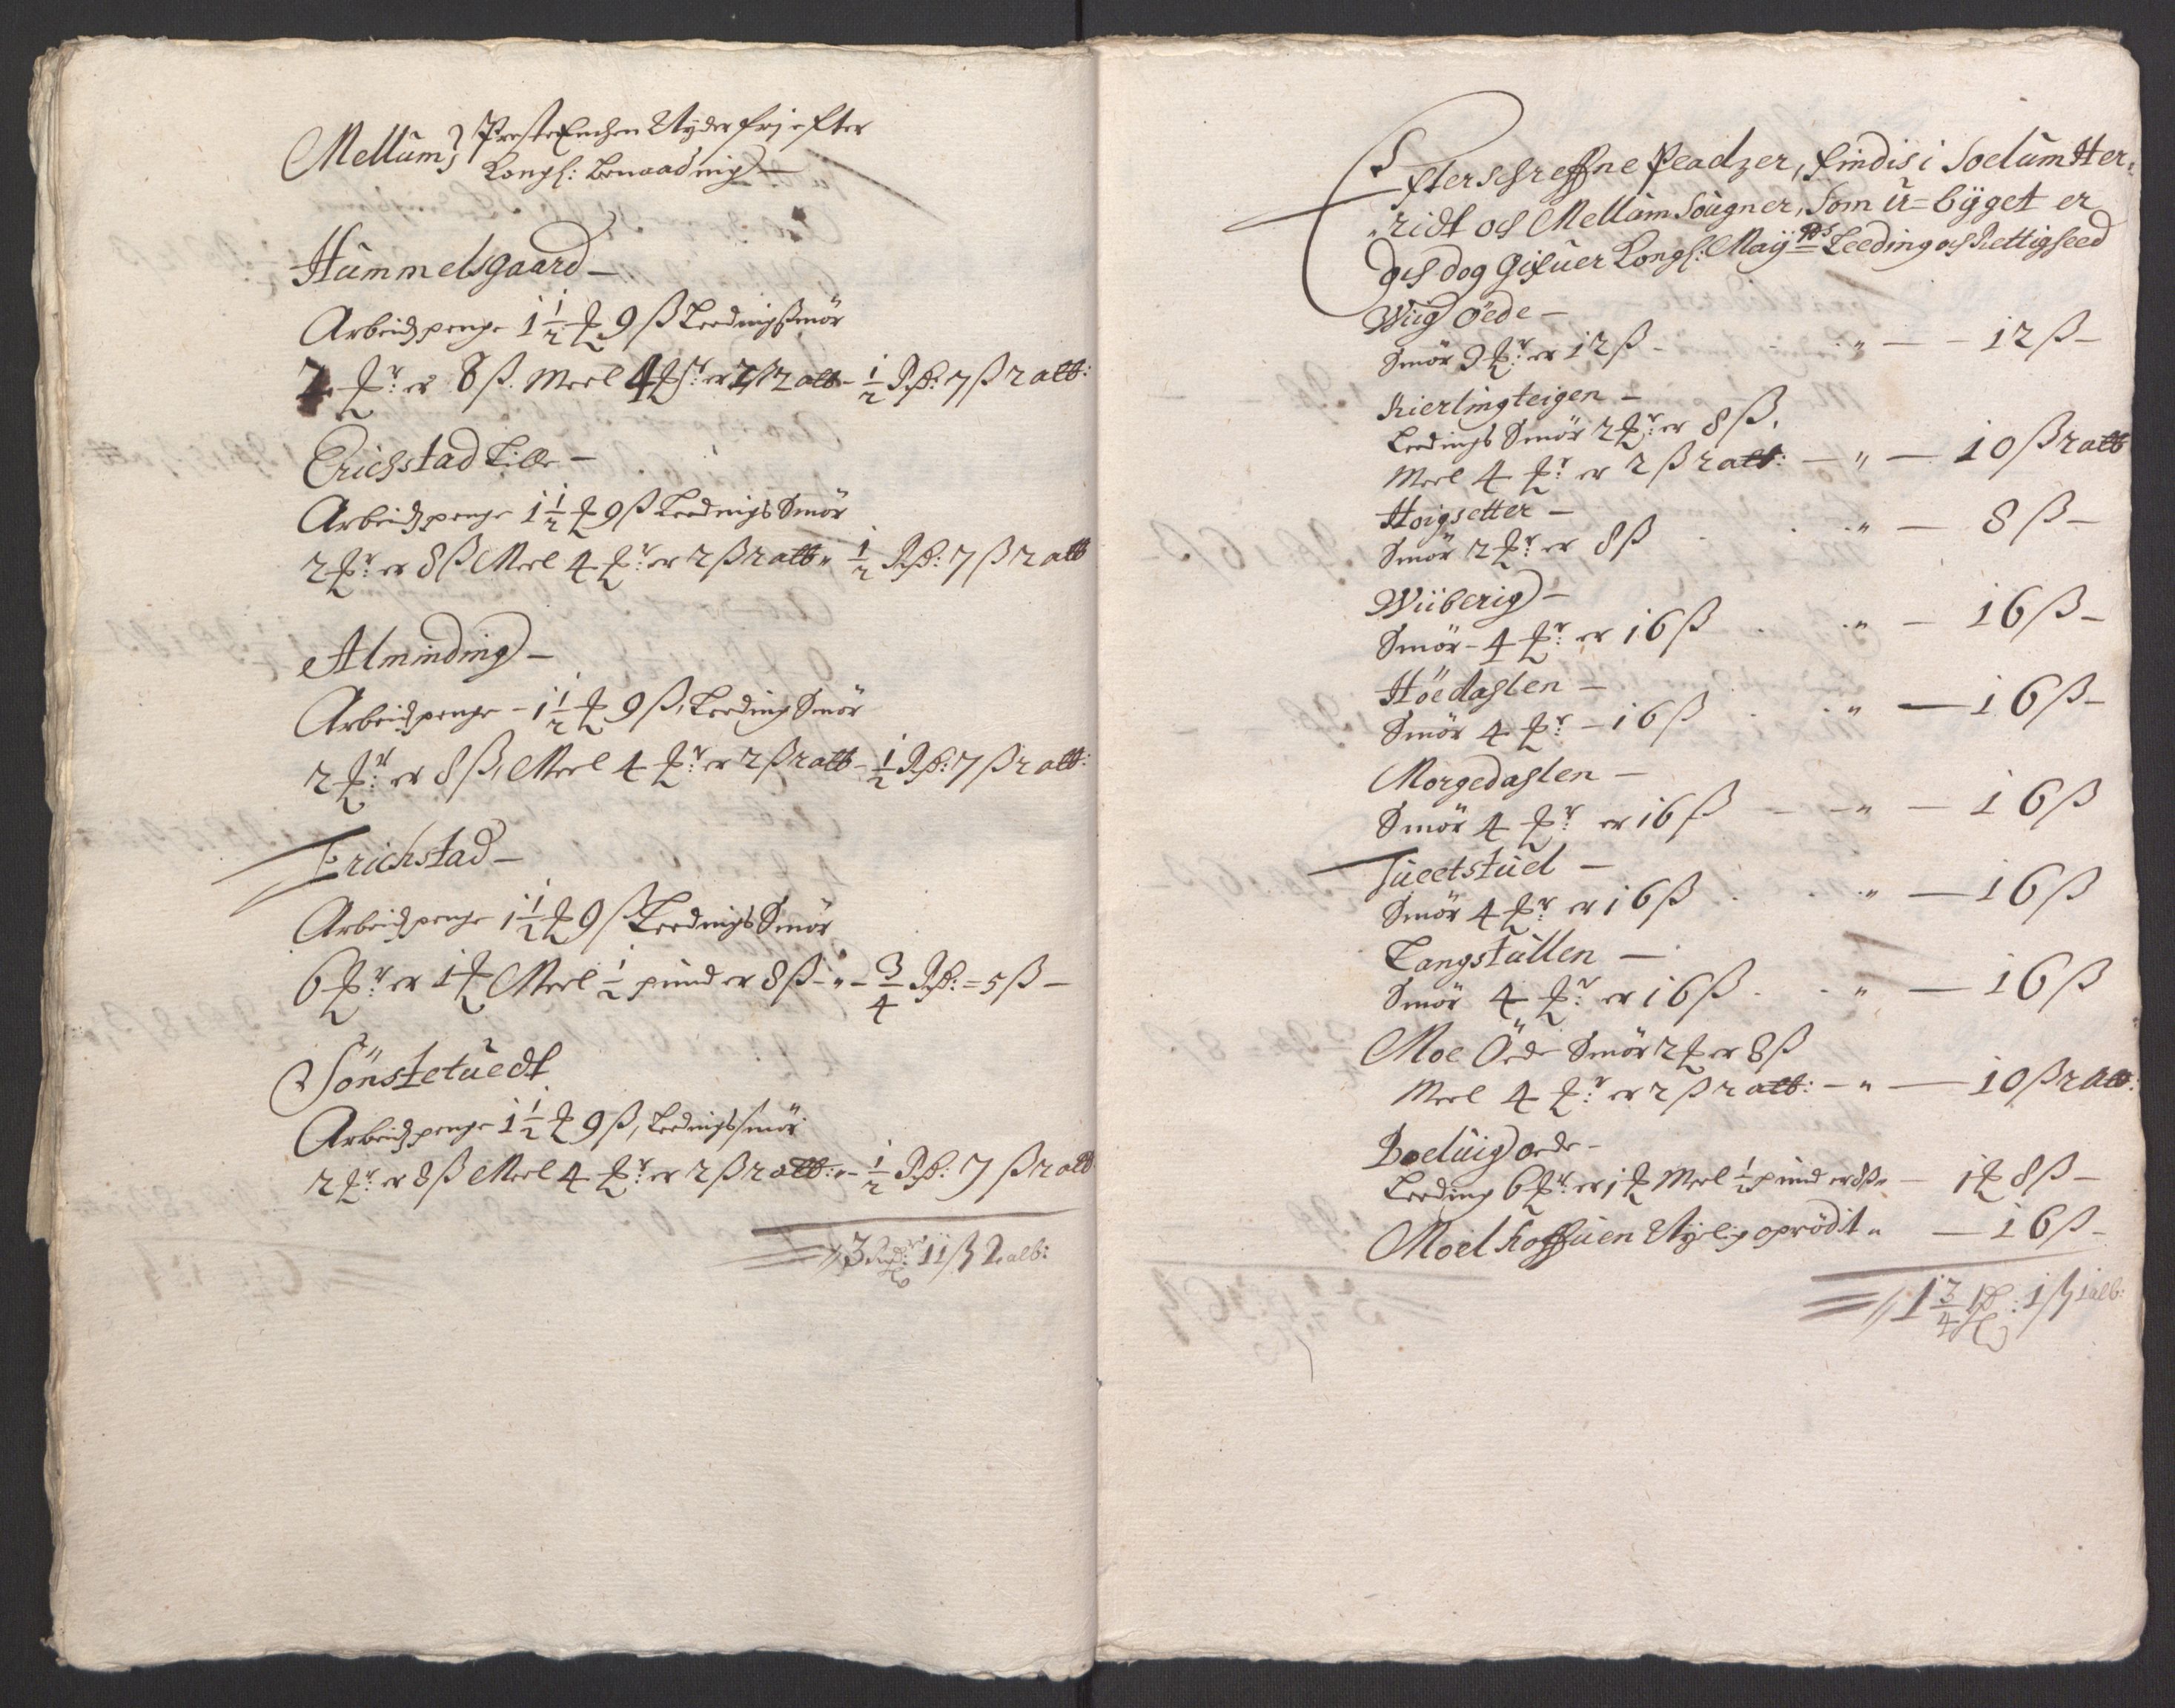 Mellum, Presteenchen Nyder frj efter
Kongl: benaadnig —
Hummelsgaard —
Arbeidspenge 1 1/2 ₰ 9 ß Leedingsmör
2 ₰r: er 8 ß. Meel 4 ₰r er 2 ß 2 alb - 1/2 Rd: 7 ß 2 alb:
Erichstad Lille —
Arbeidspenge 1 1/2 ₰ 9 ß Leedings Smör
2 ₰r: er 8 ß Meel 4 ₰r: er 2 ß 2 alb " 1/2 Rd: 7 ß 2 alb
Alminding —
Arbeidspenge - 1 1/2 ₰ 9 ß, Leeding Smör
2 ₰r: er 8 ß, Meel 4 ₰r: er 2 ß 2 alb - 1/2 Rd: 7 ß 2 alb:
Erichstad —
Arbeidspenge 1 1/2 ₰ 9 ß Leedings Smör
6 ₰r: er 1 ₰ Meel 1/2 pund er 8 ß - " - 3/4 Rd: = 5 ß —
Sönstetuedt
Arbeidspenge 1 1/2 ₰ 9 ß, Leedings smör
2 ₰r: er 8 ß Meel 4 ₰r: er 2 ß 2 alb: " - 1/2 Rd: 7 ß 2 alb
3 Rd: 11 ß 2 alb:
Efterschreffne Pladzer, findis i Soelum Her=
ridt och Mellum Sougner, Som u=bÿget er
och dog gifuer Kongl: Maÿts Leeding och Rettigheed
Wiig öede —
Smör 3 ₰r: er 12 ß - " — 12 ß —
Kierlingteigen —
Leedings Smör 2 ₰r: er 8 ß,
Meel 4 ₰r: er 2 ß 2 alb: — " — 10 ß 2 alb
Hoigsetter —
Smör 2 ₰r: er 8 ß " — 8 ß —
Wiiberig —
Smör - 4 ₰r: er 16 ß " — 16 ß —
Höedahlen —
Smör 4 ₰r: - 16 ß " — 16 ß —
Morgedahlen —
Smör 4 ₰r: er 16 ß — " — 16 ß
Tueetstuel —
Smör 4 ₰r: er 16 ß " — 16 ß
Langstullen —
Smör 4 ₰r: er 16 ß " — 16 ß
Moe Öede Smör 2 ₰ er 8 ß
Meel 4 ₰r: er 2 ß 2 alb: — " — 10 ß 2 alb:
Boeluig öede —
Leeding 6 ₰r: er 1 ₰ Meel 1/2 pund er 8 ß " — 1 ₰ 8 ß —
Moelhoffuen Nyelig oprödit " — 16 ß —
1 3/4 Rd: 1 ß 1 alb: